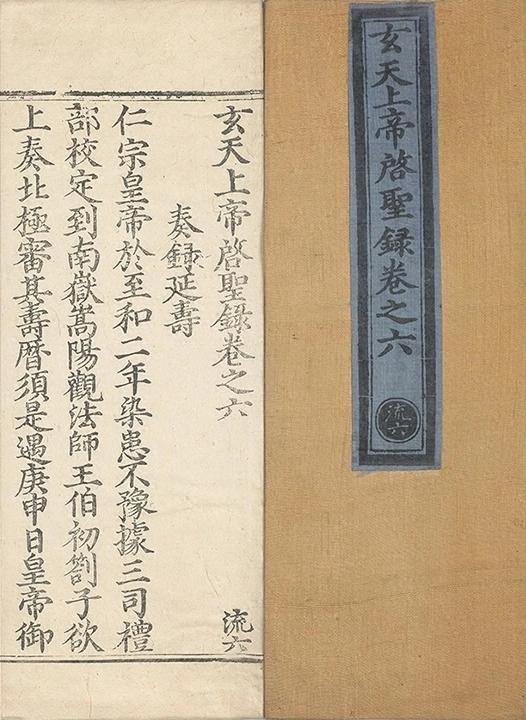 玄天上帝啓聖録卷之六
流六
玄天上帝啓聖録卷之六
流六
奏録延壽
仁宗皇帝於至和二年染患不豫據三司禮
部校定到南嶽嵩陽觀法師王伯初劄子欲
上奏北極審其壽曆須是遇庚申日皇帝御